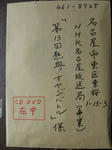 461-8725
名古屋市東区東桜
1-13-3
NHK名古屋放送局(事業)
「第13回熱血!オヤジバトル」係
CD・DVD
在中